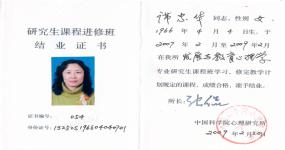 研究生课程进修班
结业证书
证书编号: 054
身份证号: 152505196604040901
许忠华 同志,性别 女,
1966 年 4 月 4 日生,于
2007 年 2 月 至 2009 年 2 月
在我所 发展与教育心理学
专业研究生课程班学习,修完教学计
划规定的课程,成绩合格,准予结业。
所长:
中国科学院心理研究所
2009 年 2 月 20 日